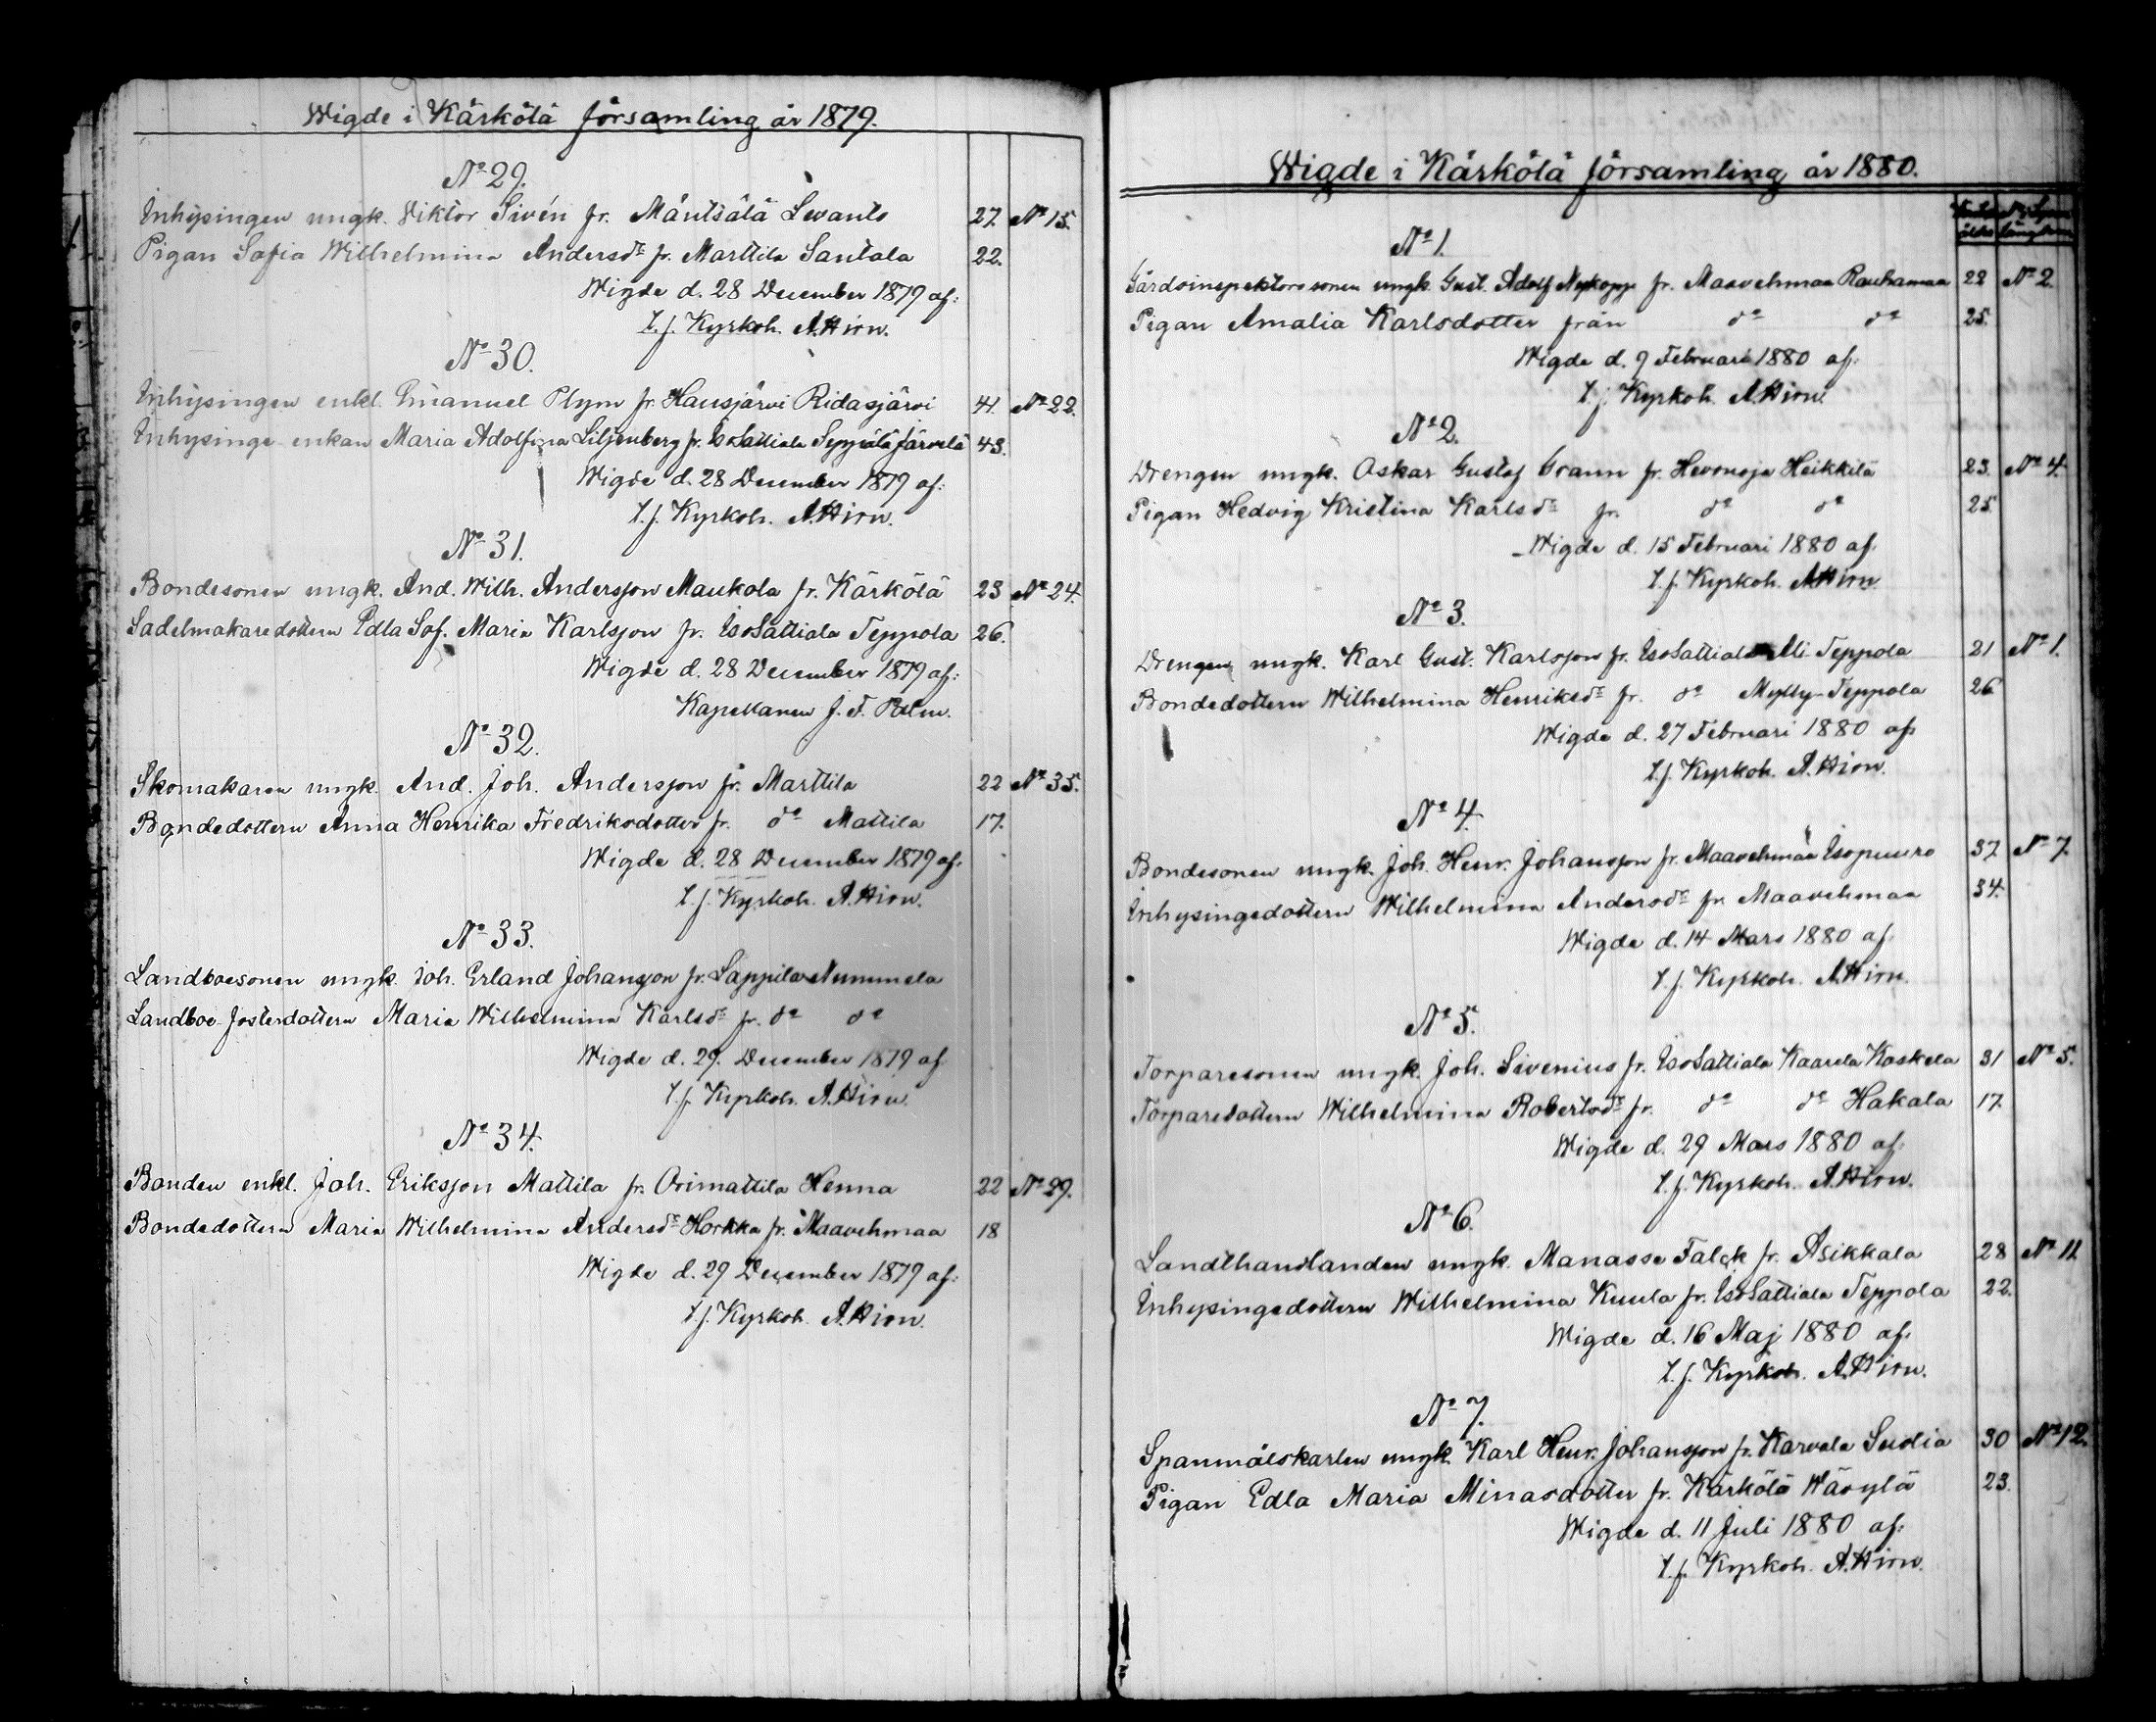 Wigde i Kärkölä församling år 1879.
No 29.
Inhysingen ungk. Viktor Sivén fr. Mäntsälä Levanto 27. No 15.
Pigan Sofia Wilhelmina Andersdr fr. Marttila Santala 22.
Wigde d. 28 December 1879 af:
t.f. Kyrkoh. A. Hirn.
No 30.
Inhysingen enkl. Emanuel Plym fr. Hausjärvi Ridasjärvi 41. No 22.
Inhysinge enkan Maria Adolfina Liljenberg fr. IsoSattiala Seppälä Järvelä 43.
Wigde d. 28 December 1879 af:
t.f. Kyrkoh. A. Hirn.
No 31.
Bondesonen ungk. And. Wilh. Andersson Maukola fr. Kärkölä 23 No 24.
Sadelmakaredottern Edla Sof. Maria Karlsson fr. IsoSattiala Teppola 26.
Wigde d. 28 December 1879 af:
Kapellanen J. F. Palm.
No 32.
Skomakaren ungk. And. Joh. Andersson fr. Marttila 22 No 35.
Bondedottern Anna Henrika Fredriksdotter fr. do Mattila 17.
Wigde d. 28 December 1879 af:
t.f. Kyrkoh. A. Hirn.
No 33.
Landboesonen ungk. Joh. Erland Johansson fr. Lappila Nummela
Landboe-fosterdottern Maria Wilhelmina Karlsdr fr. do do
Wigde d. 29. December 1879 af
t.f. Kyrkoh. A. Hirn.
No 34.
Bonden enkl. Joh. Eriksson Mattila fr. Orimattila Henna 22 No 29.
Bondedottern Maria Wilhelmina Andersdr Horkka fr. Maavehmaa 18
Wigde d. 29 December 1879 af:
t.f. Kyrkoh. A. Hirn.
Wigde i Kärkölä församling år 1880.
No 1.
Gårdsinspektorssonen ungk. Gust. Adolf Nykopp fr. Maavehmaa Rauhamaa 22 No 2.
Pigan Amalia Karlsdotter från do do 25.
Wigde d. 9 Februari 1880 af:
t.f. Kyrkoh. A. Hirn.
No 2.
Drengen ungk. Oskar Gustaf Grann fr. Hevonoja Heikkilä 23. No 4.
Pigan Hedvig Kristina Karlsdr fr. do do 25.
Wigde d. 15 Februari 1880 af.
t.f. Kyrkoh. A. Hirn.
No 3.
Drengen ungk. Karl Gust. Karlsson fr. IsoSattiala Ali-Teppola 21 No 1.
Bondedottern Wilhelmina Henriksdr fr. do Mylly-Teppola 26
Wigde d. 27 Februari 1880 af:
t.f. Kyrkoh. A. Hirn.
No 4.
Bondesonen ungk. Joh. Henr. Johansson fr. Maavehmaa Isopuuro 37. No 7.
Inhysingedottern Wilhelmina Andersdr fr. Maavehmaa 34.
Wigde d. 14 Mars 1880 af.
t.f. Kyrkoh. A. Hirn.
No 5.
Torparesonen ungk. Joh. Sivenius fr. IsoSattiala Kaarela Koskela 31 No 5.
Torparedottern Wilhelmina Robertsdr fr. do do Hakala 17.
Wigde d. 29 Mars 1880 af:
t.f. Kyrkoh. A. Hirn.
No 6.
Landthandlanden ungk. Manasse Falck fr. Asikkala 28 No 11
Inhysingedottern Wilhelmina Kuula fr. IsoSattiala Teppola 22.
Wigde d. 16 Maj 1880 af:
t.f. Kyrkoh. A. Hirn.
No 7.
Spanmålskarlen ungk. Karl Henr. Johansson fr. Karvala Sudia 30 No 12.
Pigan Edla Maria Minasdotter fr. Kärkölä Wäsylä 23.
Wigde d. 11 Juli 1880 af:
t.f. Kyrkoh. A. Hirn.